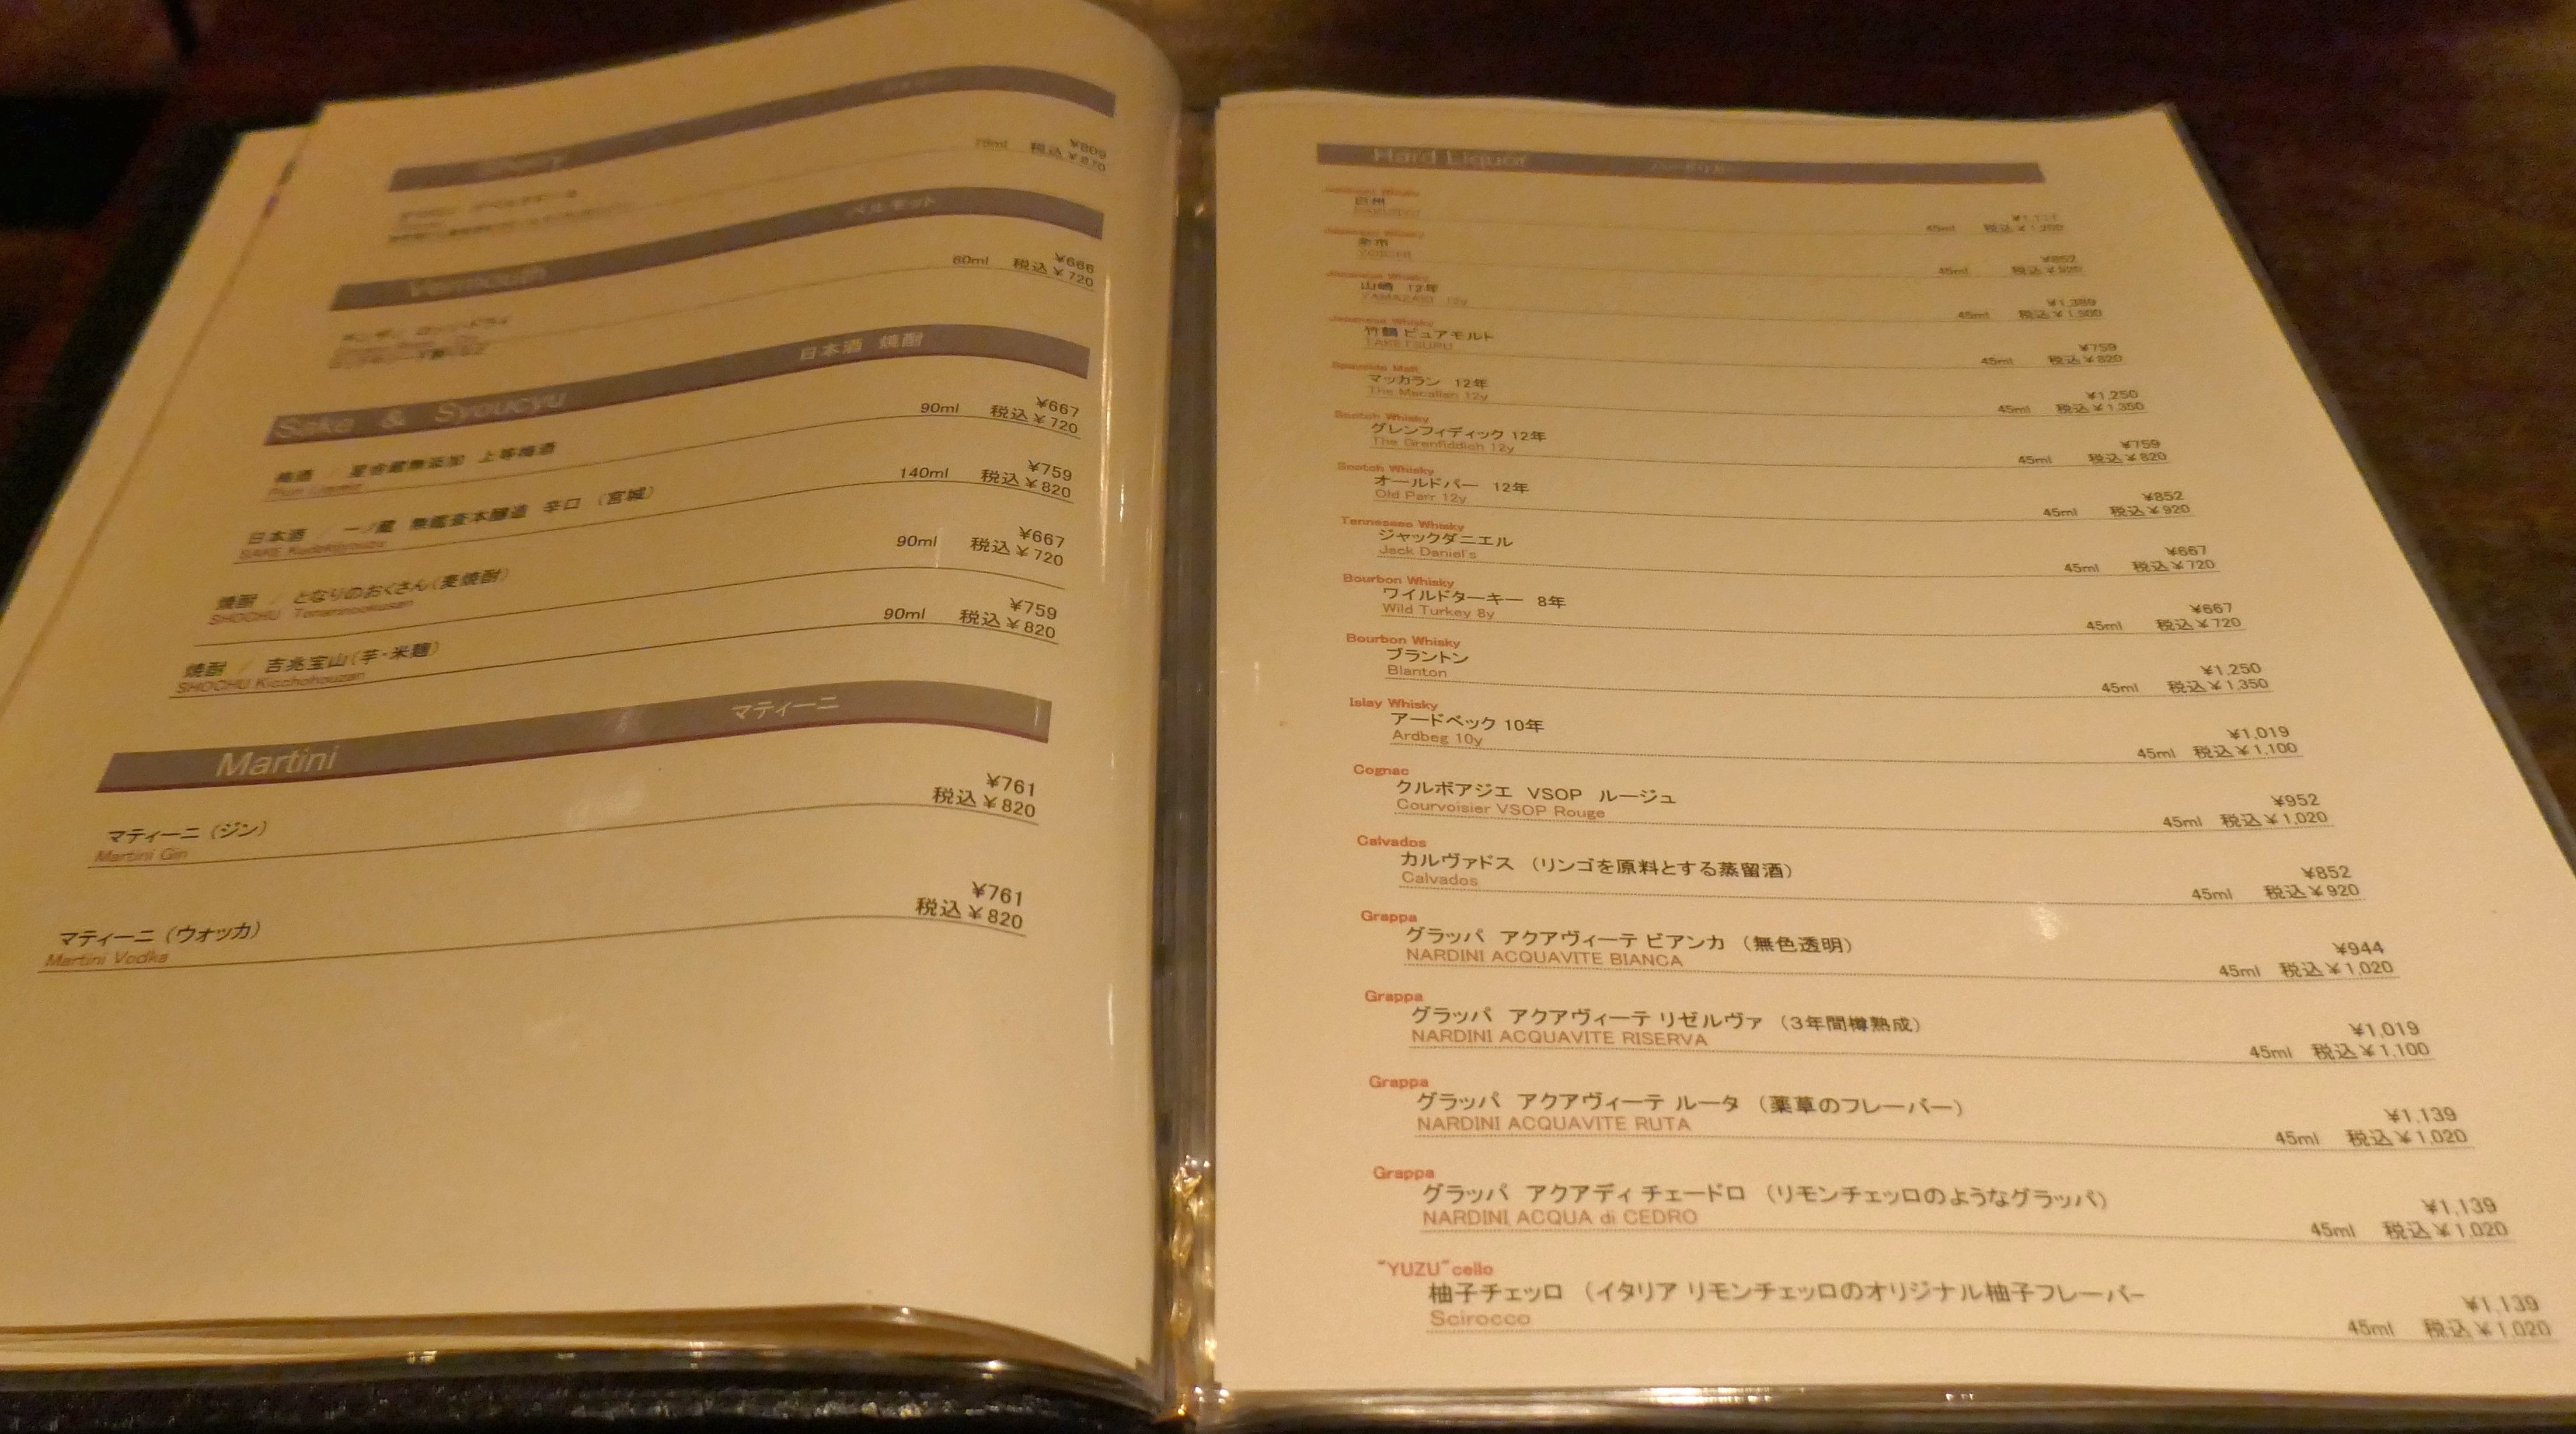 Sherry
¥809
75ml 税込¥870
Vermouth ベルモット
¥666
60ml 税込¥720
Sake & Syoucyu 日本酒 焼酎
¥667
梅酒 / 星舎蔵無添加 上等梅酒 90ml 税込¥720
Plum Liqueur
¥759
日本酒 / 一ノ蔵 無鑑査本醸造 辛口 (宮城) 140ml 税込¥820
SAKE
¥667
焼酎 / となりのおくさん(麦焼酎) 90ml 税込¥720
SHOCHU Tonarinookusan
¥759
焼酎 / 吉兆宝山(芋・米麹) 90ml 税込¥820
SHOCHU Kicchohouzan
Martini マティーニ
¥761
マティーニ (ジン) 税込¥820
Martini Gin
¥761
マティーニ (ウォッカ) 税込¥820
Martini Vodka
Hard Liquor ハードリカー
白州
45ml 税込¥1,200
Japanese Whisky
余市 ¥852
45ml 税込¥920
Japanese Whisky
山崎 12年 ¥1,389
YAMAZAKI 12y 45ml 税込¥1,500
Japanese Whisky
竹鶴 ピュアモルト ¥759
TAKETSURU 45ml 税込¥820
Speyside Malt
マッカラン 12年 ¥1,250
The Macallan 12y 45ml 税込¥1,350
Scotch Whisky
グレンフィディック 12年 ¥759
The Grenfiddich 12y 45ml 税込¥820
Scotch Whisky
オールドパー 12年 ¥852
Old Parr 12y 45ml 税込¥920
Tennessee Whisky
ジャックダニエル ¥667
Jack Daniel's 45ml 税込¥720
Bourbon Whisky
ワイルドターキー 8年 ¥667
Wild Turkey 8y 45ml 税込¥720
Bourbon Whisky
ブラントン ¥1,250
Blanton 45ml 税込¥1,350
Islay Whisky
アードベック 10年 ¥1,019
Ardbeg 10y 45ml 税込¥1,100
Cognac
クルボアジエ VSOP ルージュ ¥952
Courvoisier VSOP Rouge 45ml 税込¥1,020
Calvados
カルヴァドス (リンゴを原料とする蒸留酒) ¥852
Calvados 45ml 税込¥920
Grappa
グラッパ アクアヴィーテ ビアンカ (無色透明) ¥944
NARDINI ACQUAVITE BIANCA 45ml 税込¥1,020
Grappa
グラッパ アクアヴィーテ リゼルヴァ (3年間樽熟成) ¥1,019
NARDINI ACQUAVITE RISERVA 45ml 税込¥1,100
Grappa
グラッパ アクアヴィーテ ルータ (薬草のフレーバー) ¥1,139
NARDINI ACQUAVITE RUTA 45ml 税込¥1,020
Grappa
グラッパ アクアディ チェードロ (リモンチェッロのようなグラッパ) ¥1,139
NARDINI ACQUA di CEDRO 45ml 税込¥1,020
"YUZU"cello
柚子チェッロ (イタリア リモンチェッロのオリジナル柚子フレーバー ¥1,139
Scirocco 45ml 税込¥1,020